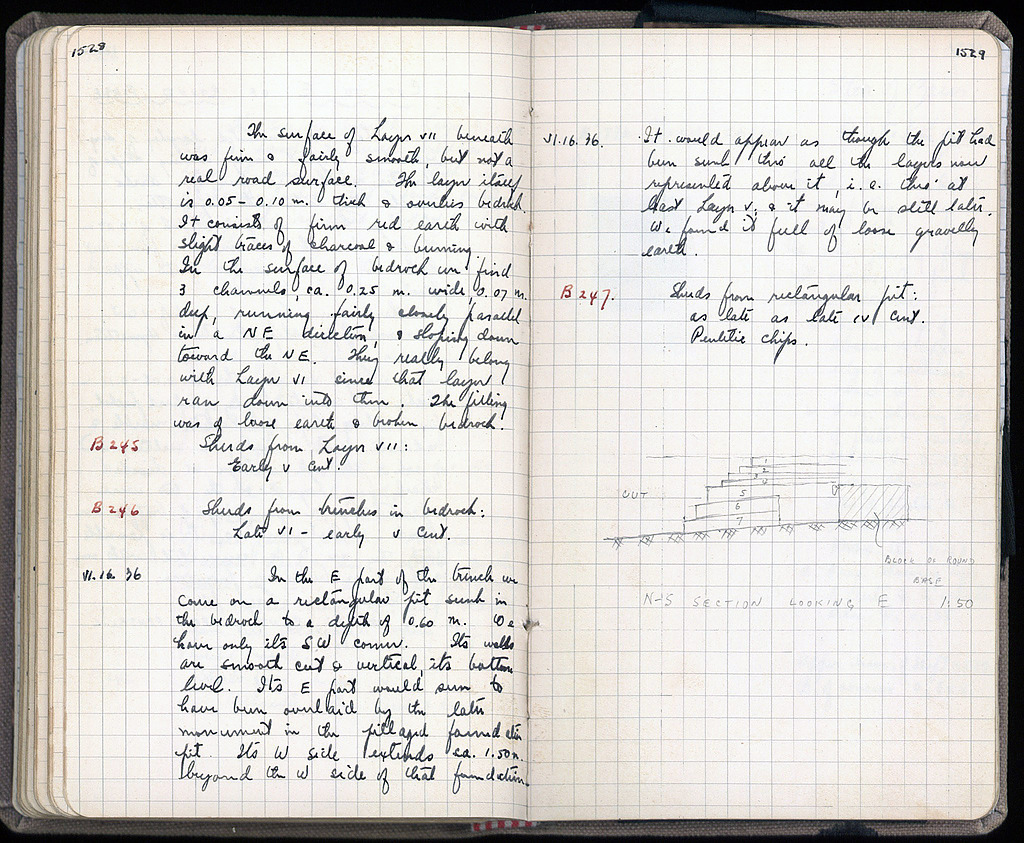 1528
The surface of Layer VII beneath
was firm & fairly smooth, but not a
real road surface. The layer itself
is 0.05 - 0.10 m. thick & overlies bedrock.
It consists of firm red earth with
slight traces of charcoal & burning.
In the surface of bedrock we find
3 channels, ca. 0.25 m. wide, 0.07 m.
deep, running fairly closely parallel
in a NE direction, & sloping down
toward the NE. They really belong
with Layer VI since that layer
ran down into them. The filling
was of loose earth & broken bedrock.
B 245 Sherds from Layer VII:
Early V Cent.
B 246 Sherds from trenches in bedrock:
Late VI - early V Cent.
VI.16.36 In the E part of the trench we
come on a rectangular pit sunk in
the bedrock to a depth of 0.60 m. We
have only its SW corner. Its walls
are smooth cut & vertical, its bottom
level. Its E part would seem to
have been overlaid by the later
monument in the pillaged foundation
pit. Its W side extends ca. 1.50 m.
beyond the W side of that foundation.
1529
VI.16.36. It would appear as though the pit had
been sunk thro' all the layers now
represented above it, i.e. thro' at
least Layer V, & it may be still later.
We found it full of loose gravelly
earth.
B 247. Sherds from rectangular pit:
as late as late IV Cent.
Pentelic chips.
1
2
3
4
CUT 5
6
7
BLOCK OF ROUND
BASE
N-S SECTION LOOKING E 1:50